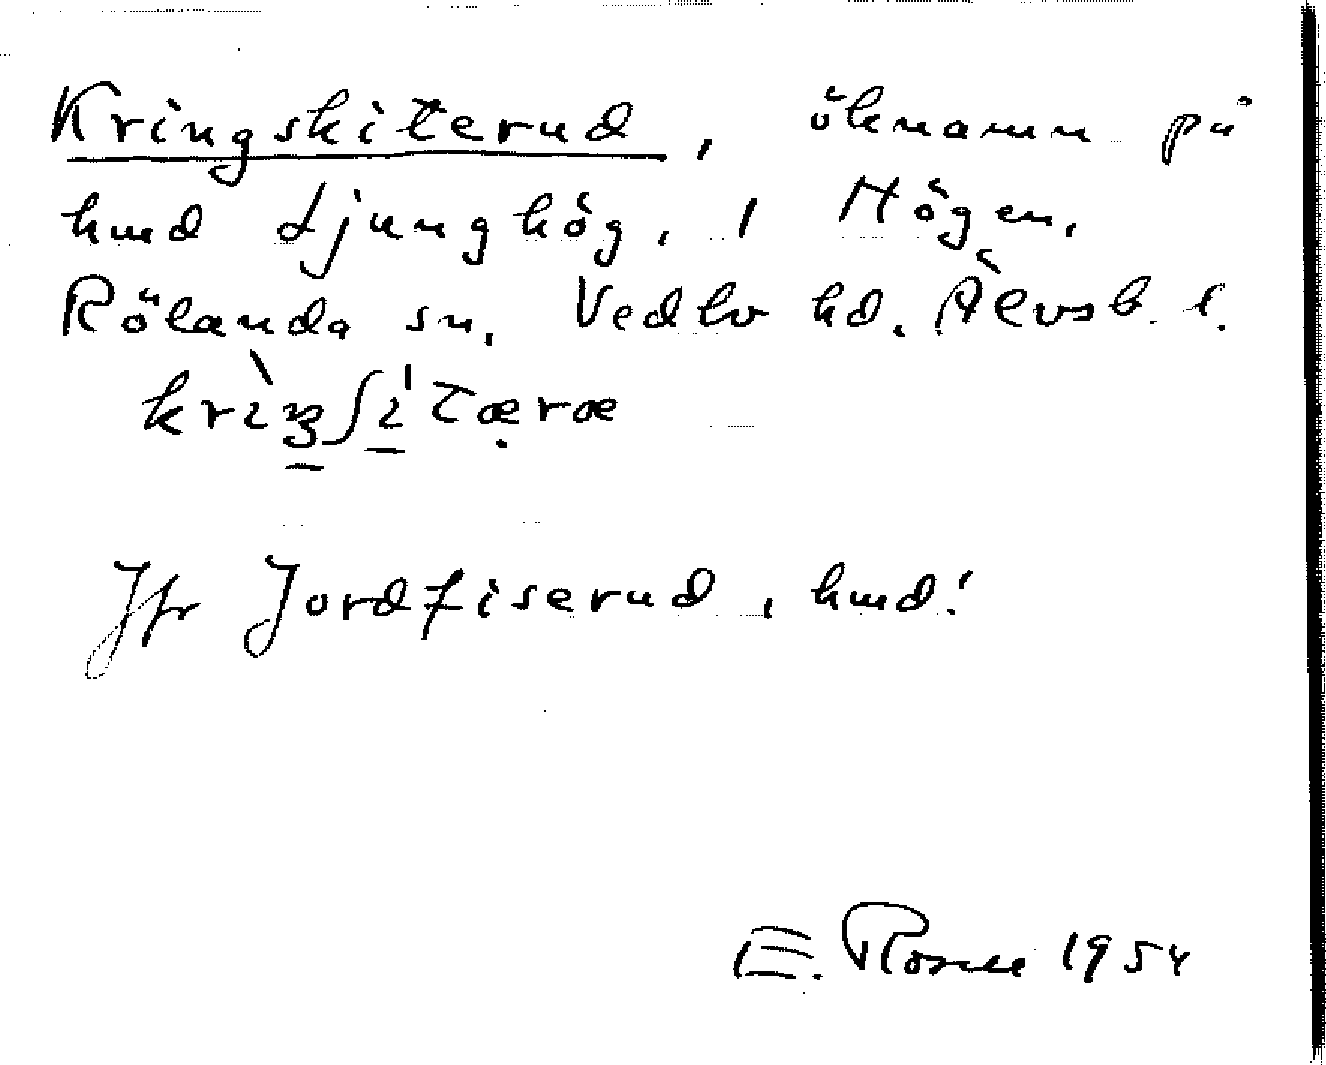 Kringskiterud, öknamn på
hmd Ljunghög, 1 Högen,
Rölanda sn, Vedbo hd. Älvsb. l.
krìŋʃítæræ
Jfr Jordfiserud, hmd!
E. Rosell 1954